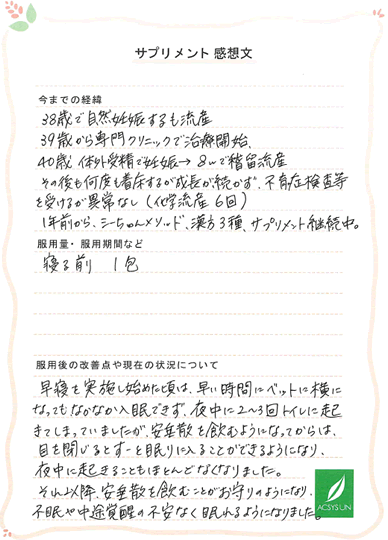 サプリメント 感想文
今までの経緯
38歳で自然妊娠するも流産
39歳から専門クリニックで治療開始、
40歳 体外受精で妊娠→ 8wで稽留流産
その後も何度も着床するが成長が続かず、不育症検査等
を受けるが異常なし（化学流産 6回）
1年前から、シーちゃんメソッド、漢方3種、サプリメント継続中。
服用量・服用期間など
寝る前 1包
服用後の改善点や現在の状況について
早寝を実施し始めた頃は、早い時間にベットに横に
なってもなかなか入眠できず、夜中に2〜3回トイレに起
きてしまっていましたが、安垂散を飲むようになってからは、
目を閉じるとすーと眠りに入ることができるようになり、
夜中に起きることもほとんどなくなりました。
それ以降、安垂散を飲むことがお守りのようになり、
不眠や中途覚醒の不安なく眠れるようになりました。
ACSYSUN